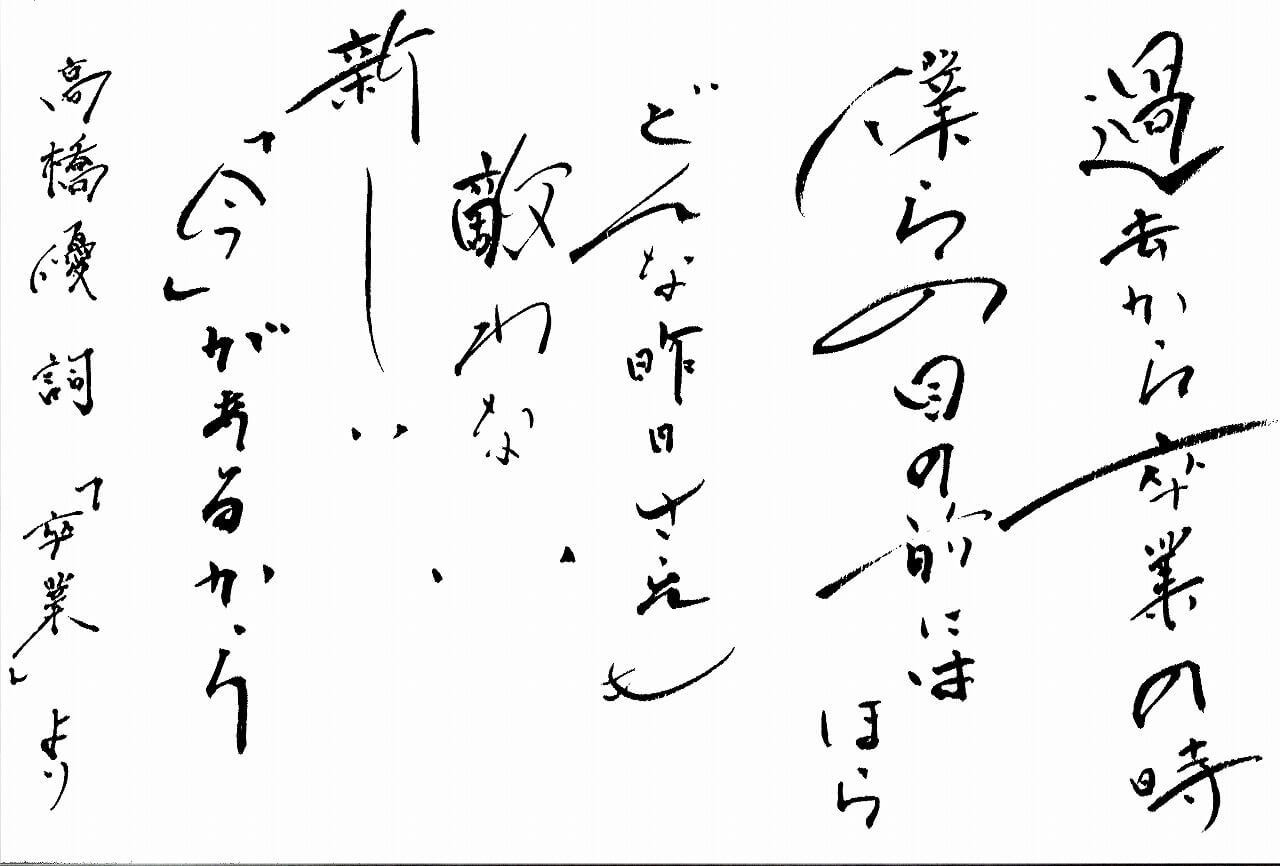 過去から卒業の時
僕らの目の前には
ほら
どんな昨日さえも
敵わない
新しい
「今」があるから
高橋優 詞 「卒業」より